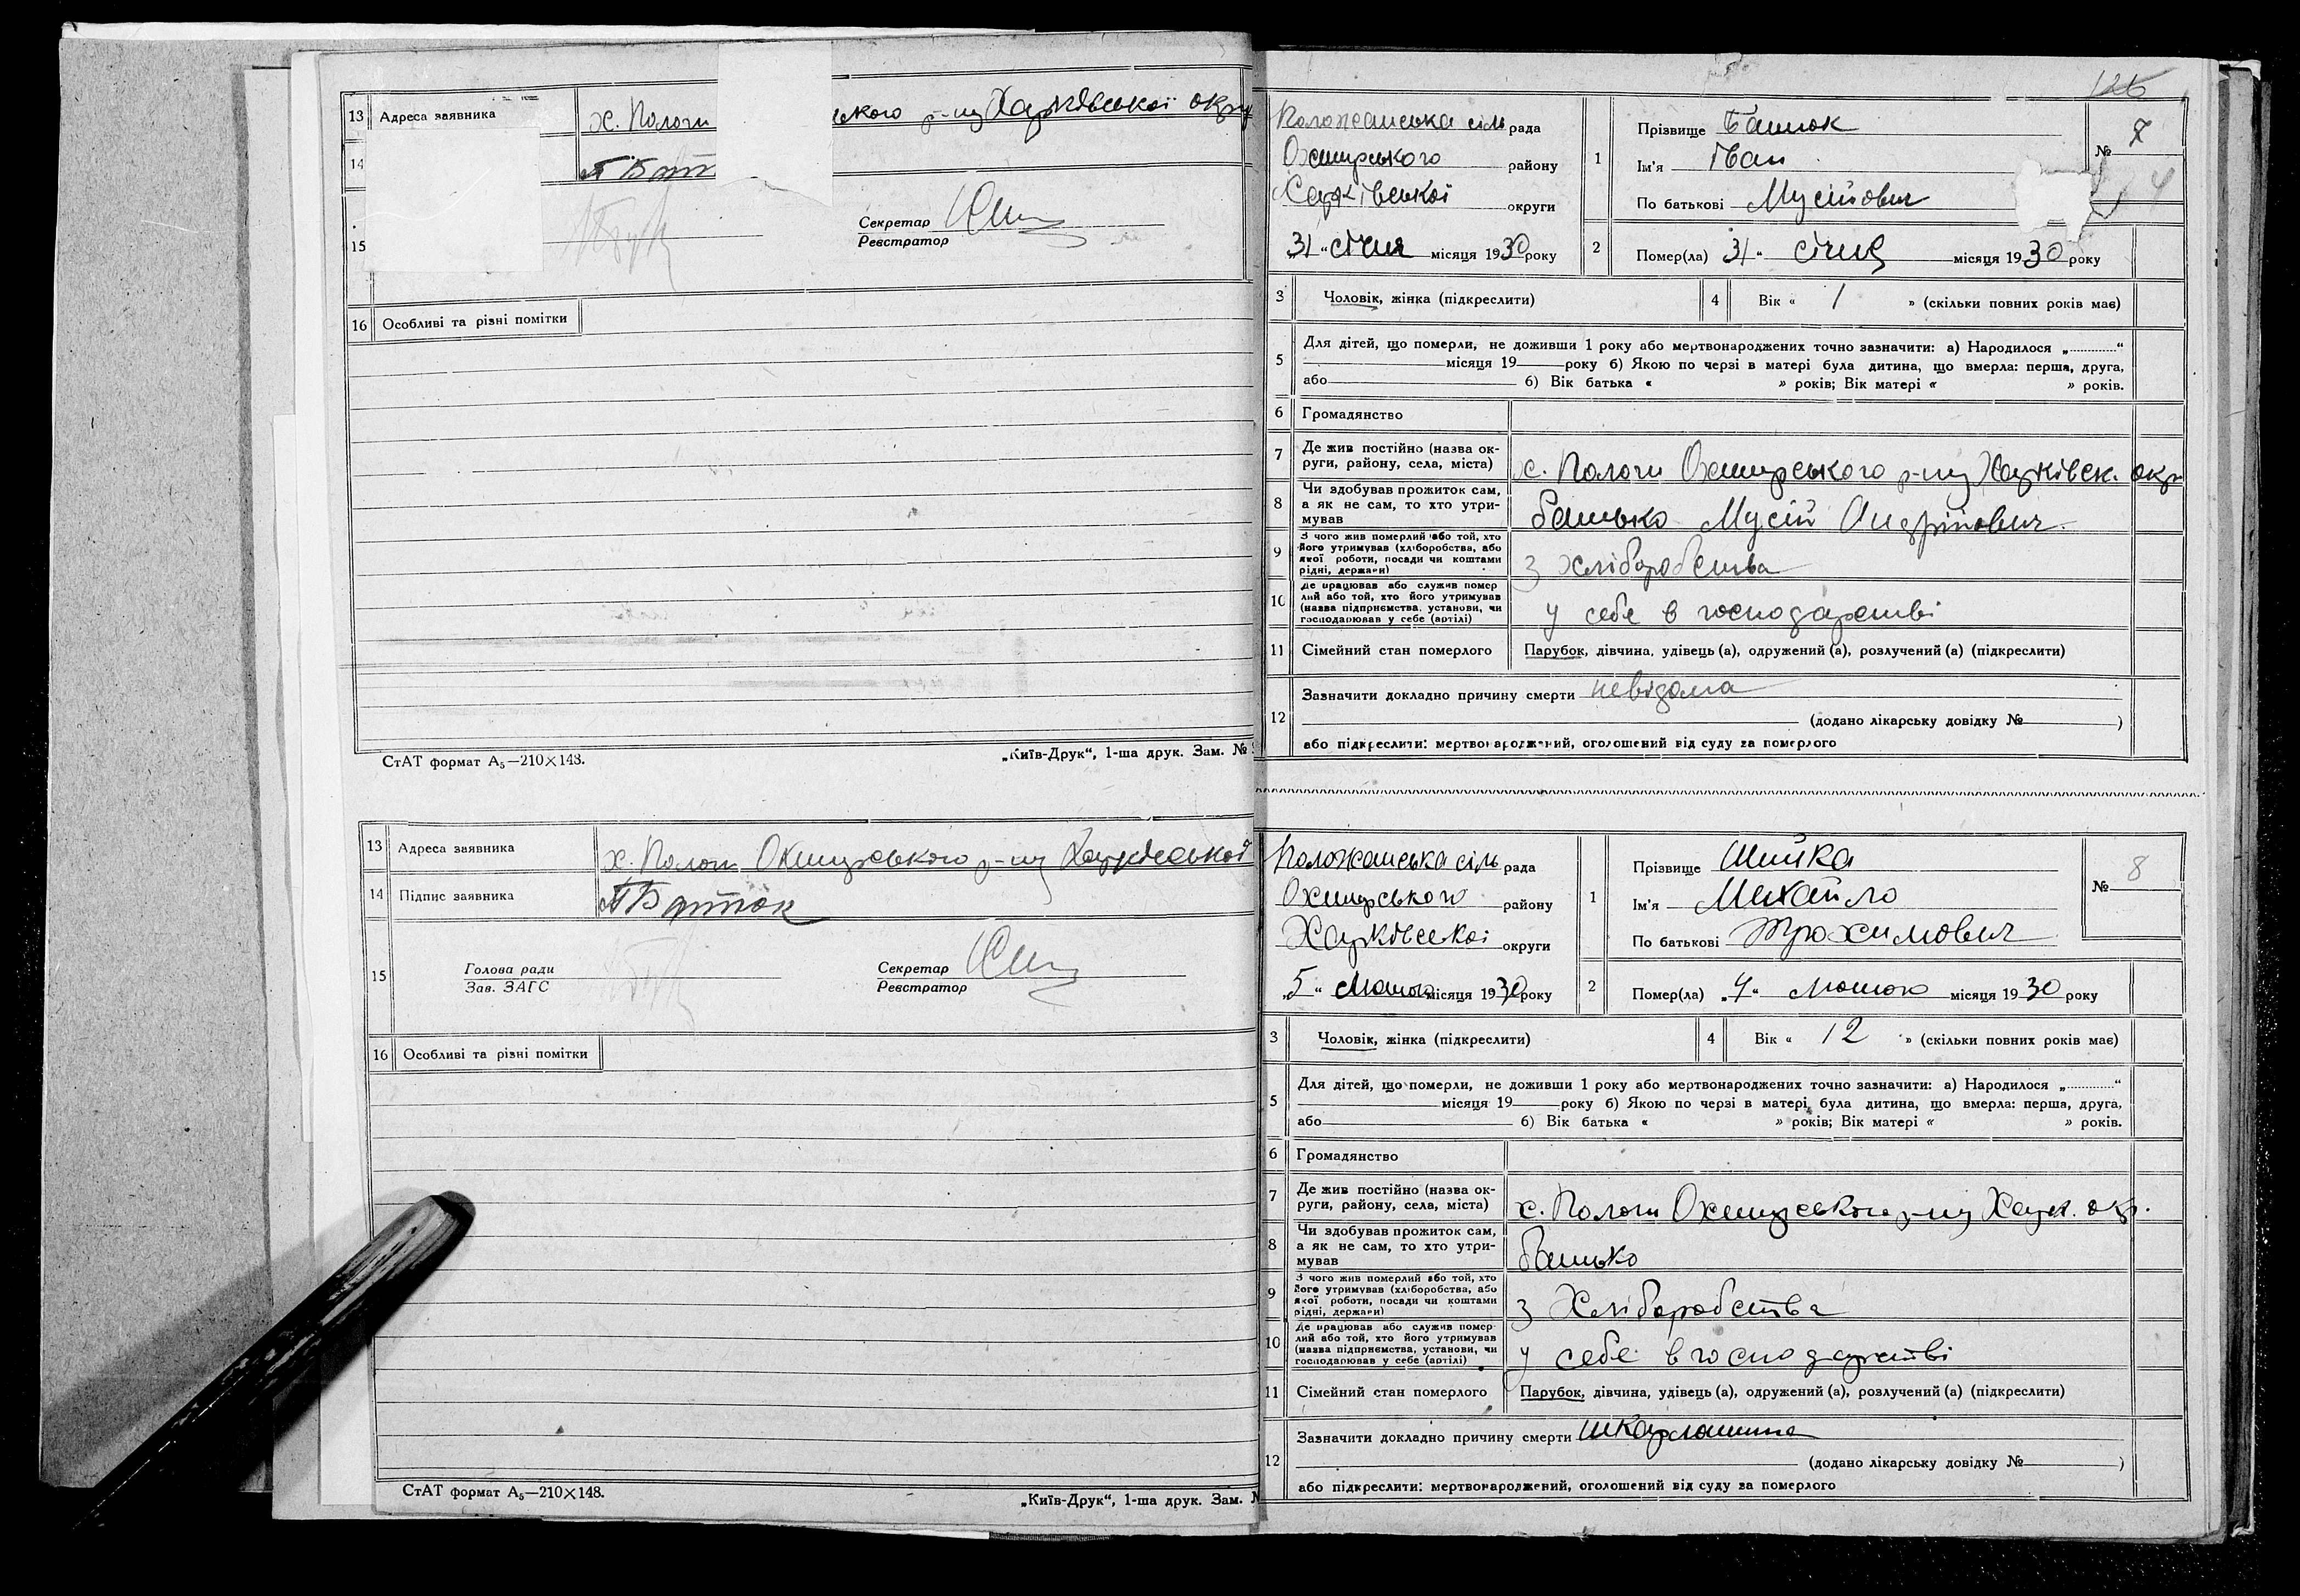 13 Адреса заявника х. Пологи ського р-ну Харківської окру
14 П Батт
15 Секретар
Реєстратор
16 Особливі та різні помітки
СтАТ формат А5—210×148.
„Київ-Друк“, 1-ша друк. Зам. №
13 Адреса заявника х. Пологи Охтирського р-ну Харківської
14 Підпис заявника П Баттюк
15 Голова ради Секретар
Зав. ЗАГС Реєстратор
16 Особливі та різні помітки
СтАТ формат А5—210×148.
„Київ-Друк“, 1-ша друк. Зам. №
126
Положанська сіль рада
Охтирського району
Харківської округи
„31“ січня місяця 1930 року
1 Прізвище Батюк
Ім'я Іван
По батькові Мусійович
№ 7
4
2 Помер(ла) 31 “ січня місяця 1930 року
3 Чоловік, жінка (підкреслити) 4 Вік « 1 » (скільки повних років має)
5 Для дітей, що померли, не доживши 1 року або мертвонароджених точно зазначити: а) Народилося „............“
місяця 19 року б) Якою по черзі в матері була дитина, що вмерла: перша, друга,
або б) Вік батька « » років; Вік матері « » років.
6 Громадянство
7 Де жив постійно (назва ок-
руги, району, села, міста) х. Пологи Охтирського р-ну Харківськ. окр
8 Чи здобував прожиток сам,
а як не сам, то хто утри-
мував батько Мусій Андрійович
9 З чого жив померлий або той, хто
його утримував (хліборобства, або
якої роботи, посади чи коштами
рідні, держави) з хліборобства
10 Де працював або служив помер
лий або той, хто його утримував
(назва підприємства, установи, чи
господарював у себе (артілі) у себе в господарстві
11 Сімейний стан померлого Парубок, дівчина, удівець (а), одружений (а), розлучений (а) (підкреслити)
12 Зазначити докладно причину смерти невідома
(додано лікарську довідку № )
або підкреслити: мертвонароджений, оголошений від суду за померлого
Положанська сіль рада
Охтирського району
Харківської округи
„5“ Лютого місяця 1930 року
1 Прізвище Шийка
Ім'я Михайло
По батькові Трохимович
№ 8
2 Помер(ла) „4“ Лютого місяця 1930 року
3 Чоловік, жінка (підкреслити) 4 Вік « 12 » (скільки повних років має)
5 Для дітей, що померли, не доживши 1 року або мертвонароджених точно зазначити: а) Народилося „............“
місяця 19 року б) Якою по черзі в матері була дитина, що вмерла: перша, друга,
або б) Вік батька « » років; Вік матері « » років.
6 Громадянство
7 Де жив постійно (назва ок-
руги, району, села, міста) х. Пологи Охтирського р-ну Харк. окр.
8 Чи здобував прожиток сам,
а як не сам, то хто утри-
мував батько
9 З чого жив померлий або той, хто
його утримував (хліборобства, або
якої роботи, посади чи коштами
рідні, держави) з Хліборобства
10 Де працював або служив помер
лий або той, хто його утримував
(назва підприємства, установи, чи
господарював у себе (артілі) у себе в господарстві
11 Сімейний стан померлого Парубок, дівчина, удівець (а), одружений (а), розлучений (а) (підкреслити)
12 Зазначити докладно причину смерти шкарлатина
(додано лікарську довідку № )
або підкреслити: мертвонароджений, оголошений від суду за померлого